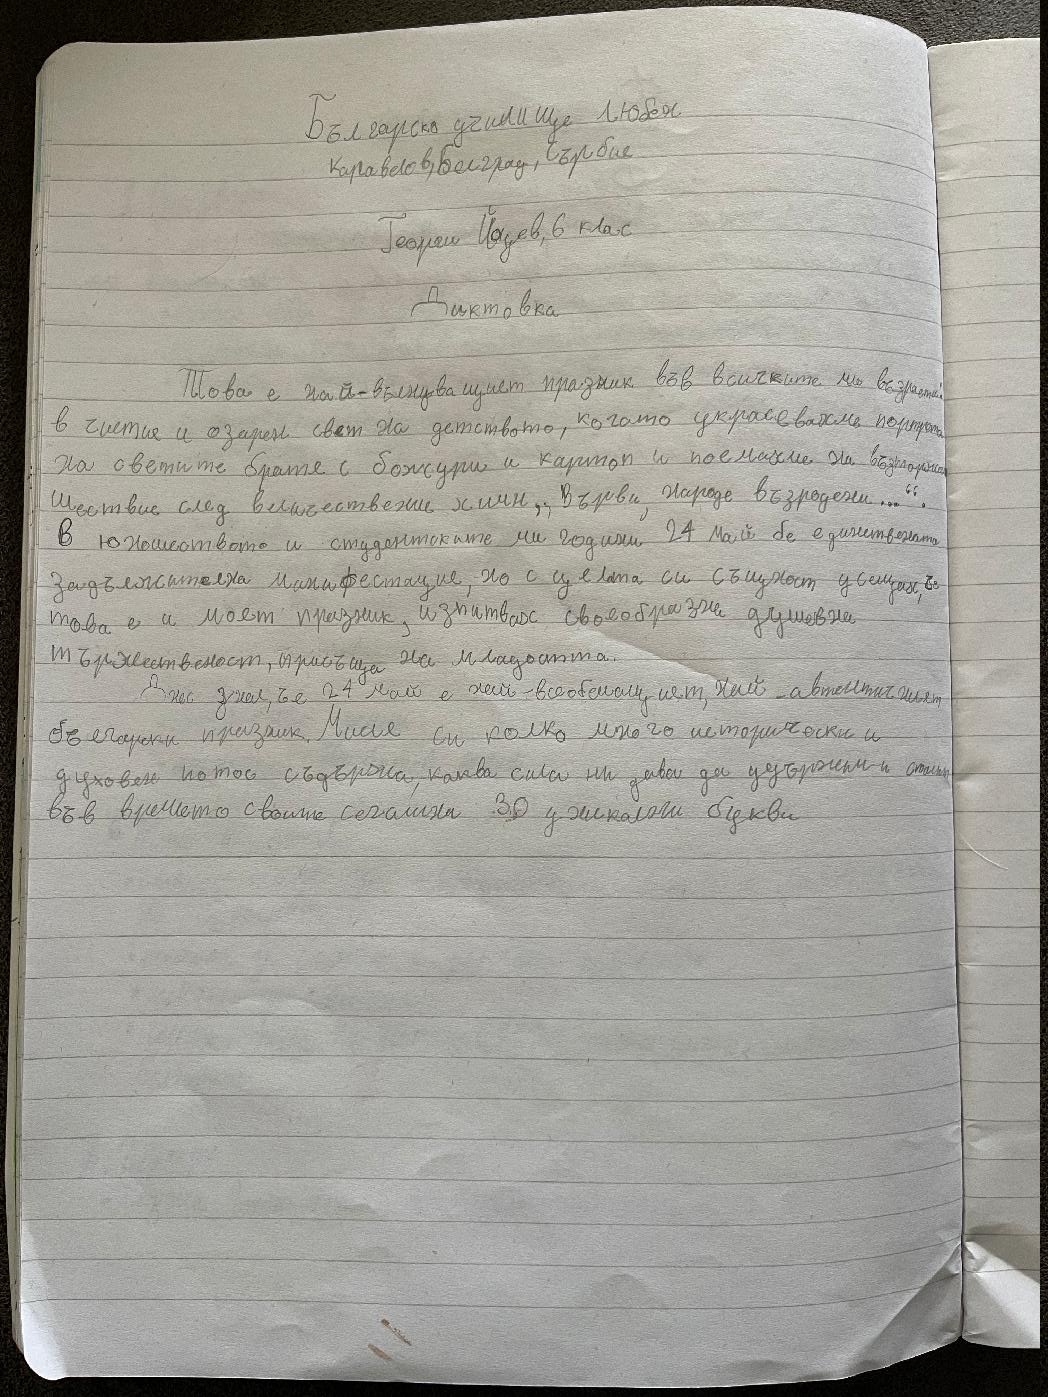 Българско училище Любен
Каравелов, Белград, Сърбие
Георги Йоцев, 6 клас
Диктовка
Това е най-вълнуващиет празник във всичките ми
в чистие и озарен свет на детството, когато украсевахме портрета
на светите брате с божури и картоп и поемахме на
шествие след величествение химн „Върви, народе възродени...“.
В юношеството и студентските ми години 24 май бе единствената
задължителна манифестацие, но с целата си същност усещах, че
това е и моет празник, изпитвах своеобразна душевна
тържественост, присъща на младостта.
Днес знам, че 24 май е най-всеобемащиет, най-автентичниет
български празник. Мисле си колко много исторически и
духовен патос съдържа, каква сила ни дава да удържим и
във времето своите сегашни 30 уникални букви